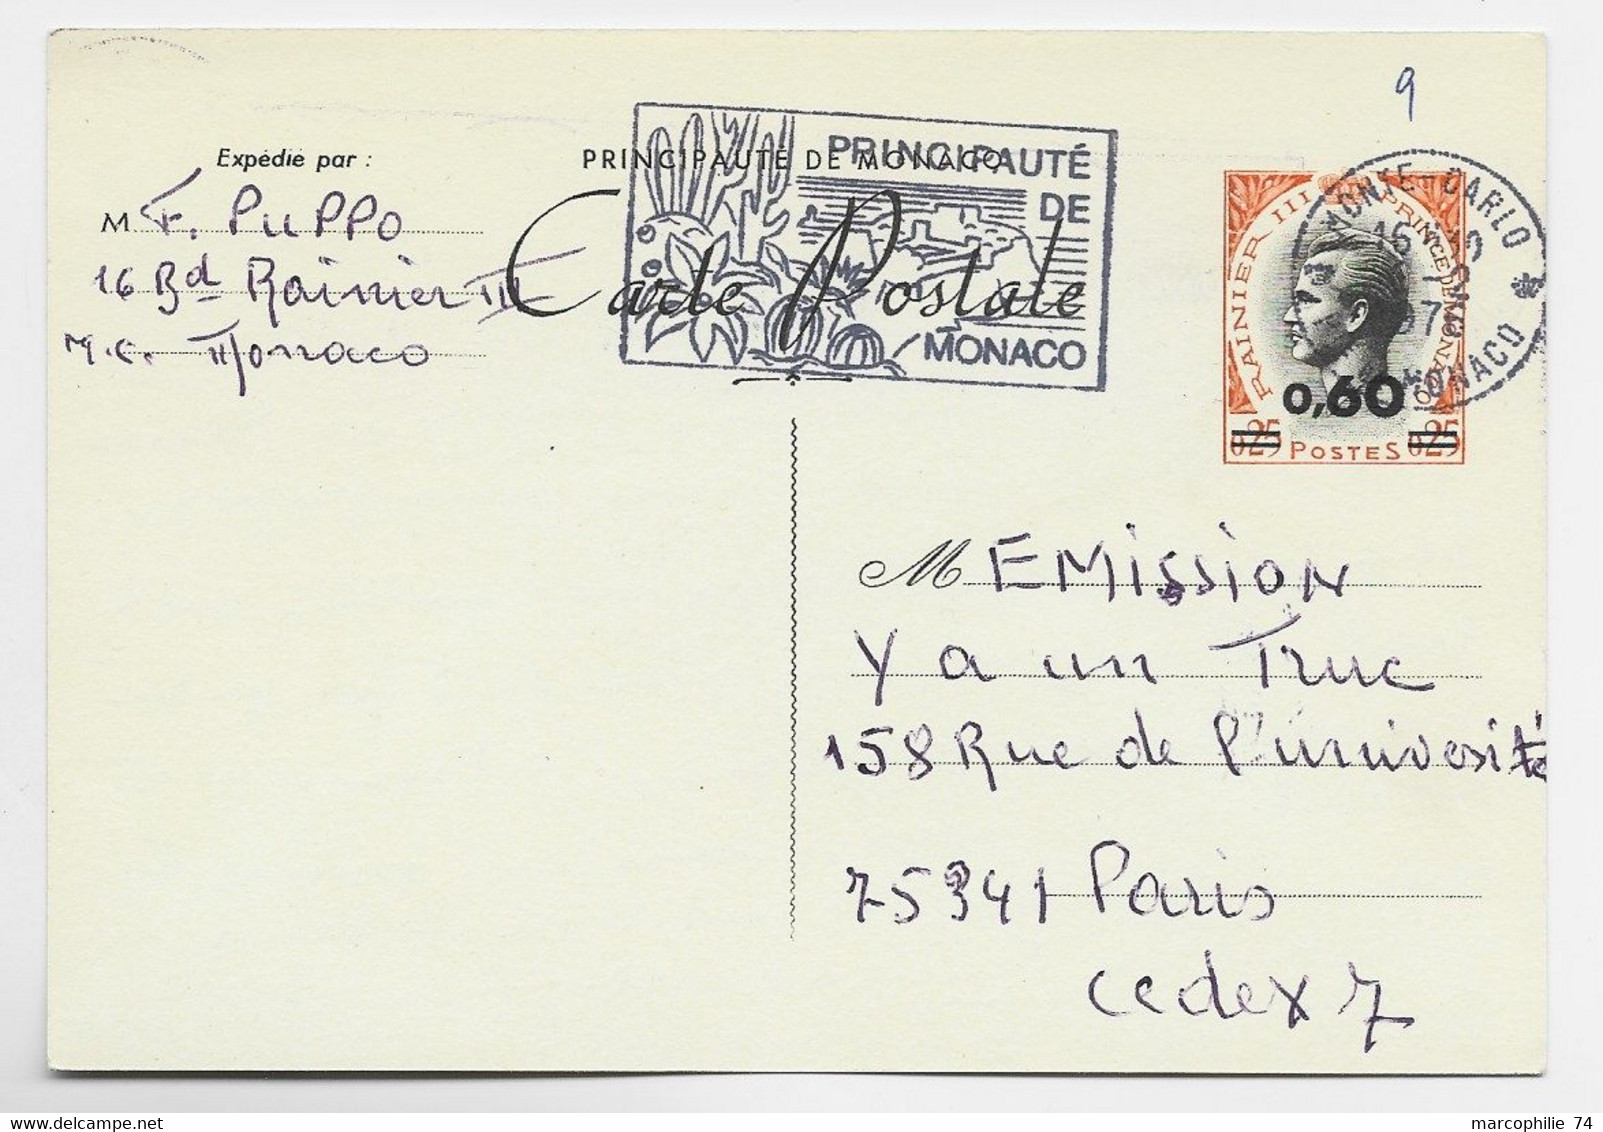 9
Expédié par :
PRINCIPAUTÉ DE MONACO
PRINCIPAUTÉ
DE
MONACO
Carte Postale
M F. PUPPO
16 Bd Rainier III
M.C. Monaco
RAINIER III PRINCE DE MONACO
0,60
0.25 POSTES 0.25
MONTE-CARLO
MONACO
M EMISSION
Y a un Truc
158 Rue de l'université
75341 Paris
Cedex 7
marcophilie 74